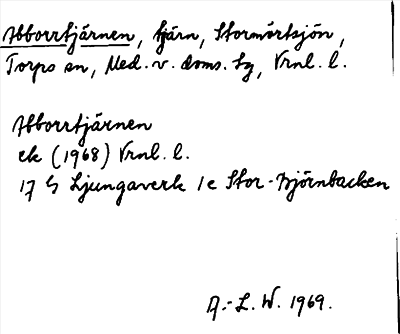 Abborrtjärnen, tjärn, Stormörtsjön,
Torps sn, Med. v. doms. tg, Vrnl. l.
Abborrtjärnen
ek (1968) Vrnl. l.
17 G Ljungaverk 1e Stor-Björnbacken
A.-L. W. 1969.